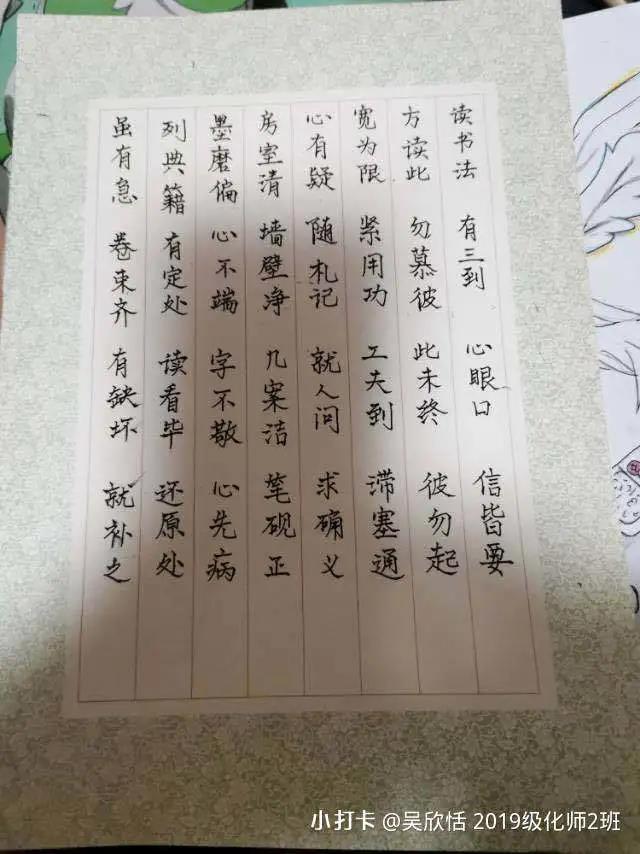 读书法 有三到 心眼口 信皆要
方读此 勿慕彼 此未终 彼勿起
宽为限 紧用功 工夫到 滞塞通
心有疑 随札记 就人问 求确义
房室清 墙壁净 几案洁 笔砚正
墨磨偏 心不端 字不敬 心先病
列典籍 有定处 读看毕 还原处
虽有急 卷束齐 有缺坏 就补之
小打卡 @吴欣恬 2019级化师2班